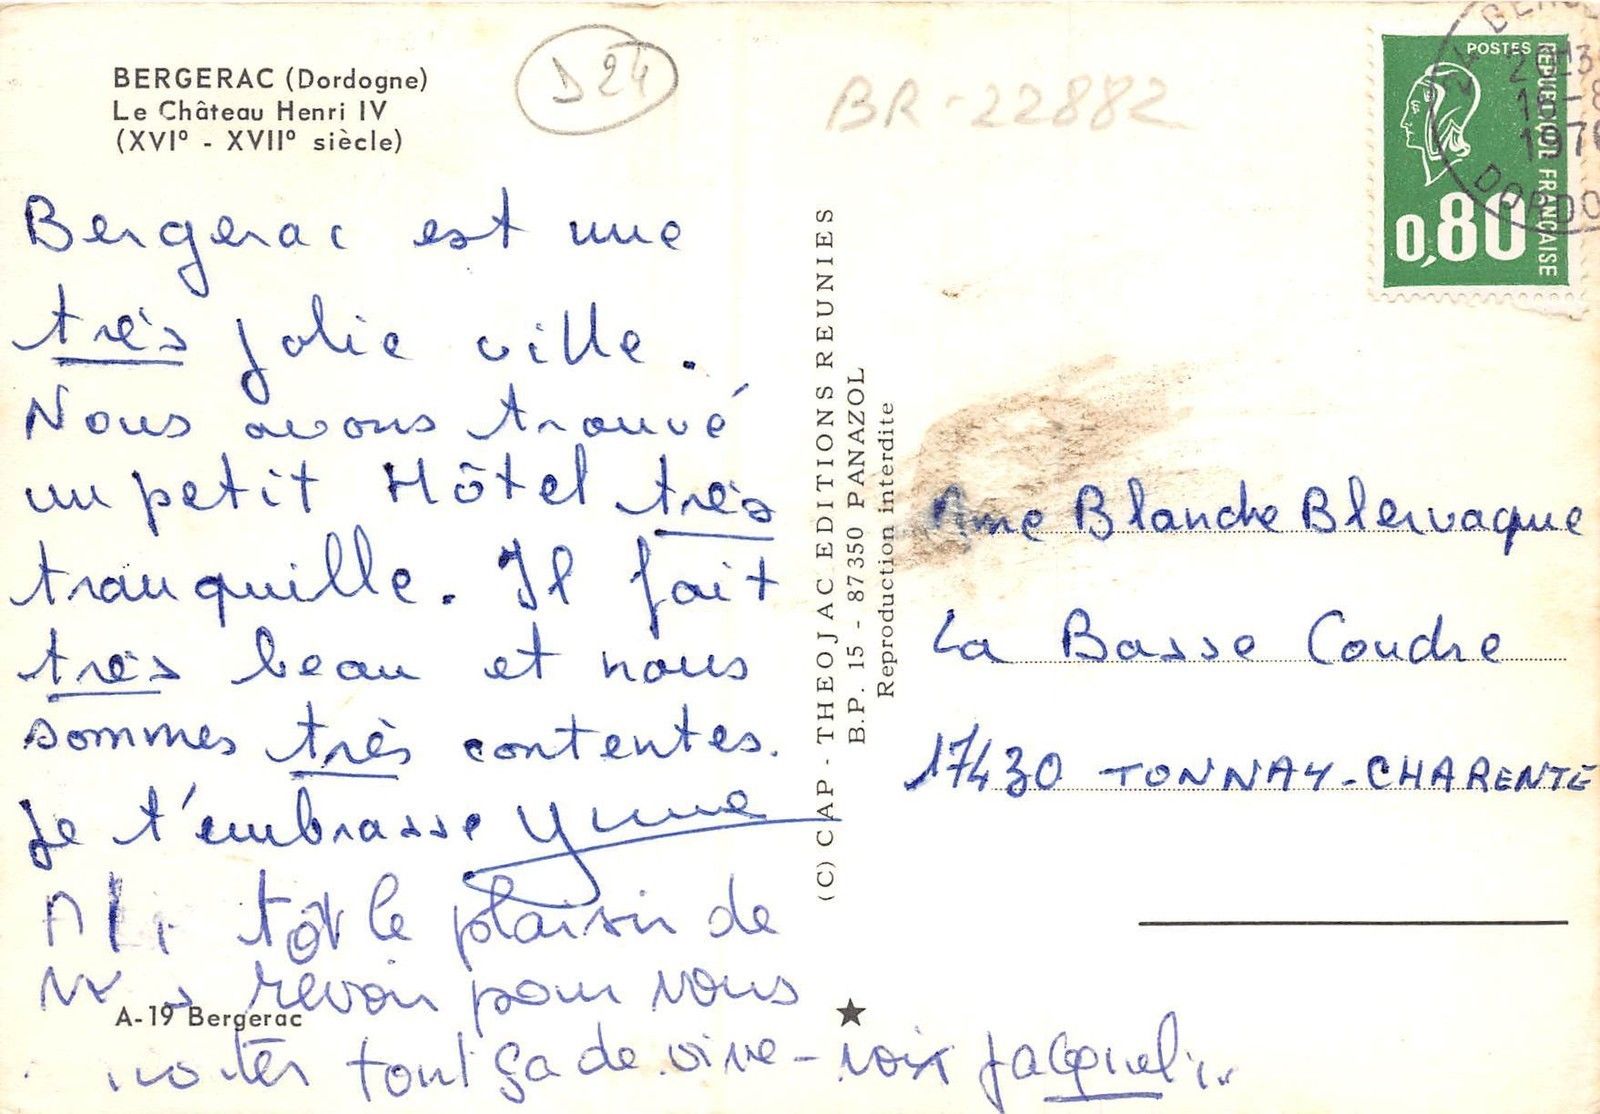 BERGERAC (Dordogne)
Le Château Henri IV
(XVI° - XVII° siècle)
D 24
BR-22882
POSTES
REPUBLIQUE FRANÇAISE
0,80
16-8
DORDO
Bergerac est une
très jolie ville.
Nous avons trouvé
un petit Hôtel très
tranquille. Il fait
très beau et nous
sommes très contentes.
Je t'embrasse Yvonne
tôt le plaisir de
revoir pour vous
tout ça de vive-voix Jacqueline
A-19 Bergerac
(C) CAP - THEOJAC EDITIONS REUNIES
B.P. 15 - 87350 PANAZOL
Reproduction interdite
Mme Blanche Blervaque
La Basse Coudre
17430 TONNAY-CHARENTE